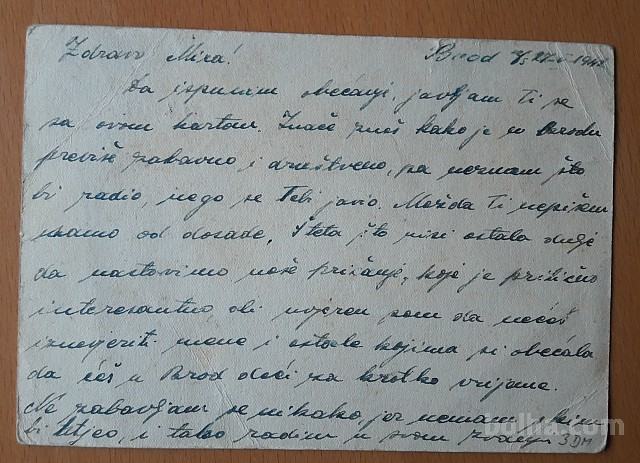 Zdravo Mira! Brod 1942
Da ispunim obećanje javljam Ti se
sa ovom kartom. Inače znaš kako je u Brodu
previše zabavno i društveno, pa neznam što
bi radio, nego se Tebi javio. Možda Ti nepišem
samo od dosade. Šteta što nisi ostala dulje
da nastavimo naše pričanje, koje je prilično
interesantno, ali uvjeren sam da nećeš
iznevjeriti mene i ostale kojima si obećala
da ćeš u Brod doći za kratko vrijeme.
Ne zabavljam se nikako, jer nemam s kim
bi letjeo, i tako radim u svom zvanju 3DM
bolha.com